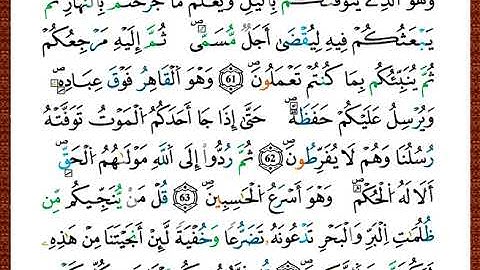 وَهُوَ الَّذِي يَتَوَفَّىٰكُم بِالَّيْلِ وَيَعْلَمُ مَا جَرَحْتُم بِالنَّهَارِ ثُمَّ
يَبْعَثُكُمْ فِيهِ لِيُقْضَىٰ أَجَلٌ مُّسَمًّى ۖ ثُمَّ إِلَيْهِ مَرْجِعُكُمْ
ثُمَّ يُنَبِّئُكُم بِمَا كُنتُمْ تَعْمَلُونَ ۖ 61 وَهُوَ الْقَاهِرُ فَوْقَ عِبَادِهِ ۖ
وَيُرْسِلُ عَلَيْكُمْ حَفَظَةً ۖ حَتَّىٰ إِذَا جَا أَحَدَكُمُ الْمَوْتُ تَوَفَّتْهُ
رُسُلُنَا وَهُمْ لَا يُفَرِّطُونَ ۖ 62 ثُمَّ رُدُّوا إِلَى اللَّهِ مَوْلَىٰهُمُ الْحَقِّ ۖ
أَلَا لَهُ الْحُكْمُ ۖ وَهُوَ أَسْرَعُ الْحَٰسِبِينَ ۖ 63 قُلْ مَن يُنَجِّيكُم مِّن
ظُلُمَٰتِ الْبَرِّ وَالْبَحْرِ تَدْعُونَهُ تَضَرُّعًا وَخُفْيَةً لَّئِنْ أَنجَيْتَنَا مِنْ هَٰذِهِ